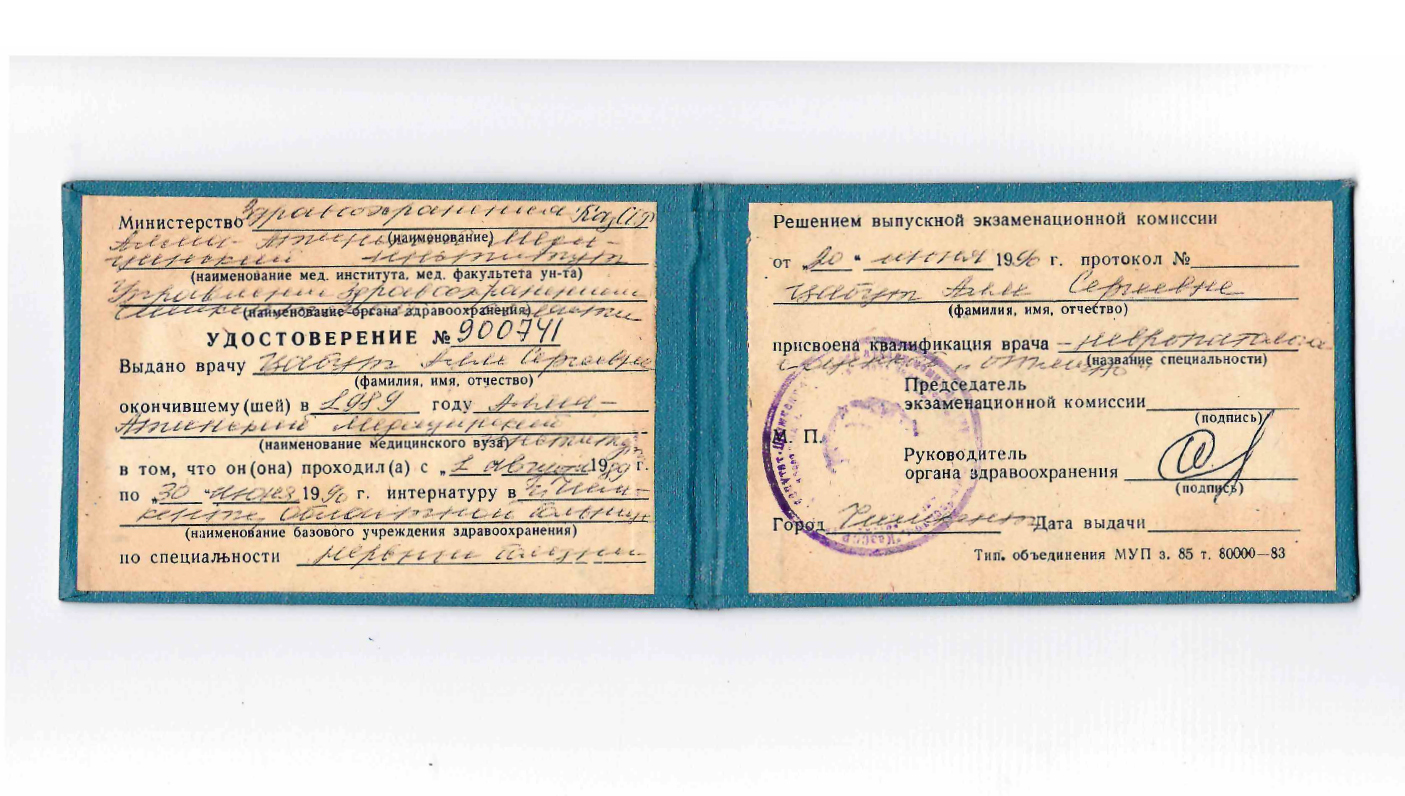 Министерство Здравоохранения КазССР
(наименование)
Алма-Атинский Меди-
цинский институт
(наименование мед. института, мед. факультета ун-та)
Управлении здравоохранением
(наименование органа здравоохранения)
УДОСТОВЕРЕНИЕ № 900741
Выдано врачу Цабут Алле Сергеевне
(фамилия, имя, отчество)
окончившему (шей) в 1989 году Алма-
Атинский Медицинский институт
(наименование медицинского вуза)
в том, что он (она) проходил (а) с „1 августа 1989 г.
по „30 " июня 1990 г. интернатуру в Чим-
кентс. областной больнице
(наименование базового учреждения здравоохранения)
по специальности нервные болезни
Решением выпускной экзаменационной комиссии
от 20 " июня 1990 г. протокол №
Цабут Алле Сергеевне
(фамилия, имя, отчество)
присвоена квалификация врача – невропатолога
(название специальности)
с оценкой „отлично"
Председатель
экзаменационной комиссии
(подпись)
М. П.
Руководитель
органа здравоохранения
(подпись)
Город Чимкент Дата выдачи
Тип. объединения МУП з. 85 т. 80000—83